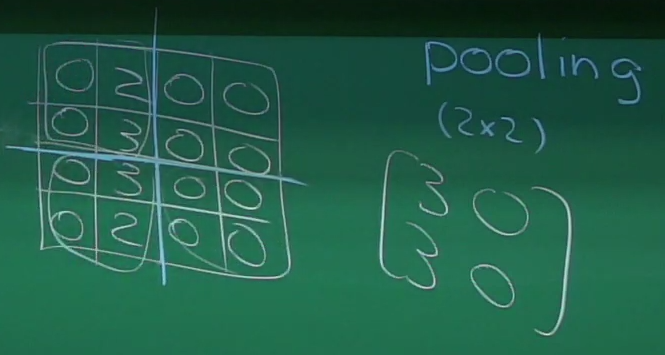 0 2 0 0
0 3 0 0
0 3 0 0
0 2 0 0
pooling
(2×2)
[3 0
3 0]